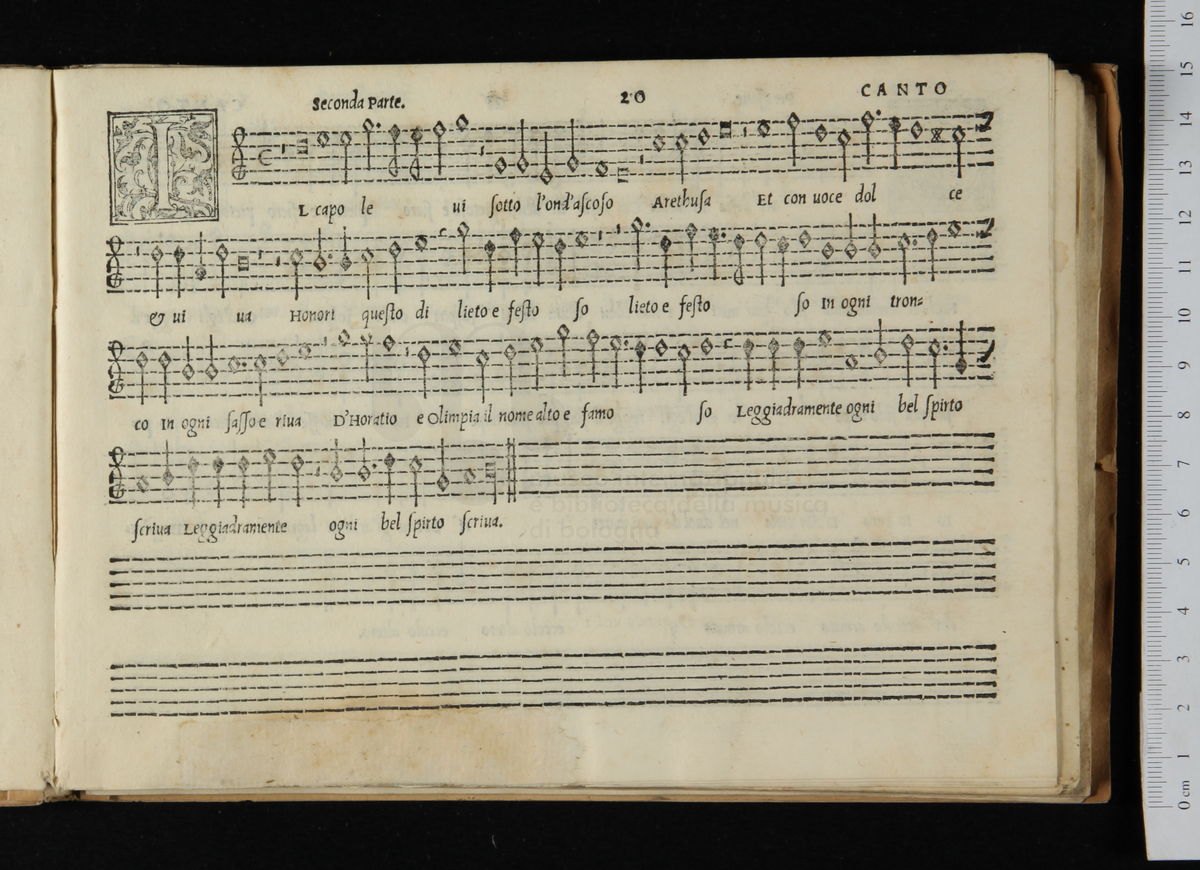 Seconda Parte. 20 CANTO
IL capo le ui sotto l'ond'ascoso Arethusa Et con uoce dol ce
& ui ua Honori questo di lieto e festo so lieto e festo so In ogni tron=
co In ogni sasso e riua D'Horatio e Olimpia il nome alto e famo so Leggiadramente ogni bel spirto
scriua Leggiadramente ogni bel spirto scriua.
e biblioteca della musica
di bologna
16
15
14
13
12
11
10
9
8
7
6
5
4
3
2
1
0 cm